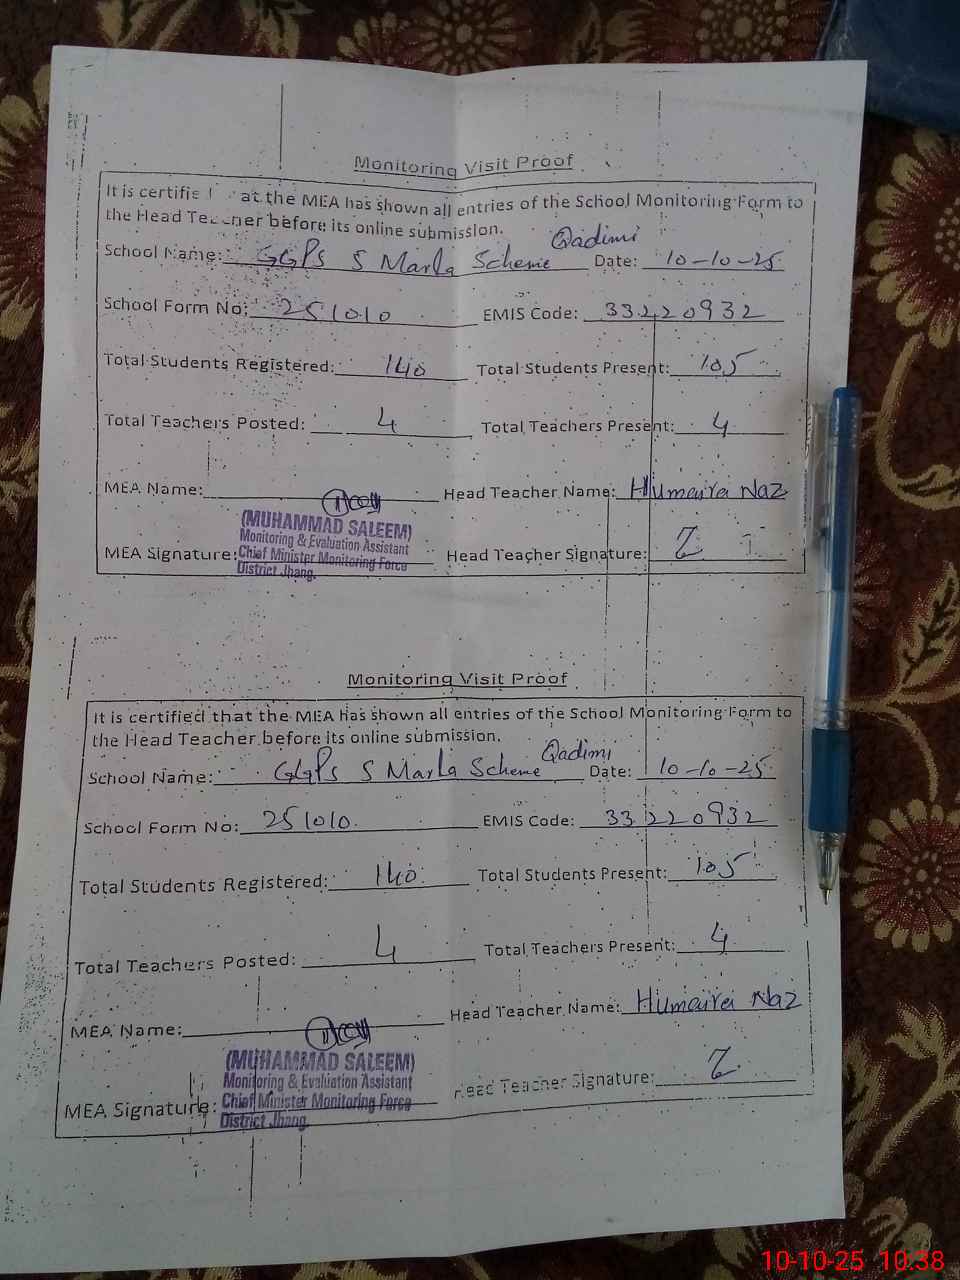 Monitoring Visit Proof
It is certifie at the MEA has shown all entries of the School Monitoring Form to
the Head Teacher before its online submission.
School Name: GGPS 5 Marla Scheme Qadimi Date: 10-10-25
School Form No: 251010 EMIS Code: 33220932
Total Students Registered: 140 Total Students Present: 105
Total Teachers Posted: 4 Total Teachers Present: 4
MEA Name: Head Teacher Name: Humaira Naz
(MUHAMMAD SALEEM)
Monitoring & Evaluation Assistant
MEA Signature: Chief Minister Monitoring Force Head Teacher Signature:
District Jhang.
Monitoring Visit Proof
It is certified that the MEA has shown all entries of the School Monitoring Form to
the Head Teacher before its online submission.
School Name: GGPS 5 Marla Scheme Qadimi Date: 10-10-25
School Form No: 251010 EMIS Code: 33220932
Total Students Registered: 140 Total Students Present: 105
Total Teachers Posted: 4 Total Teachers Present: 4
MEA Name: Head Teacher Name: Humaira Naz
(MUHAMMAD SALEEM)
Monitoring & Evaluation Assistant Head Teacher Signature:
MEA Signature: Chief Minister Monitoring Force
District Jhang.
10-10-25 10:38